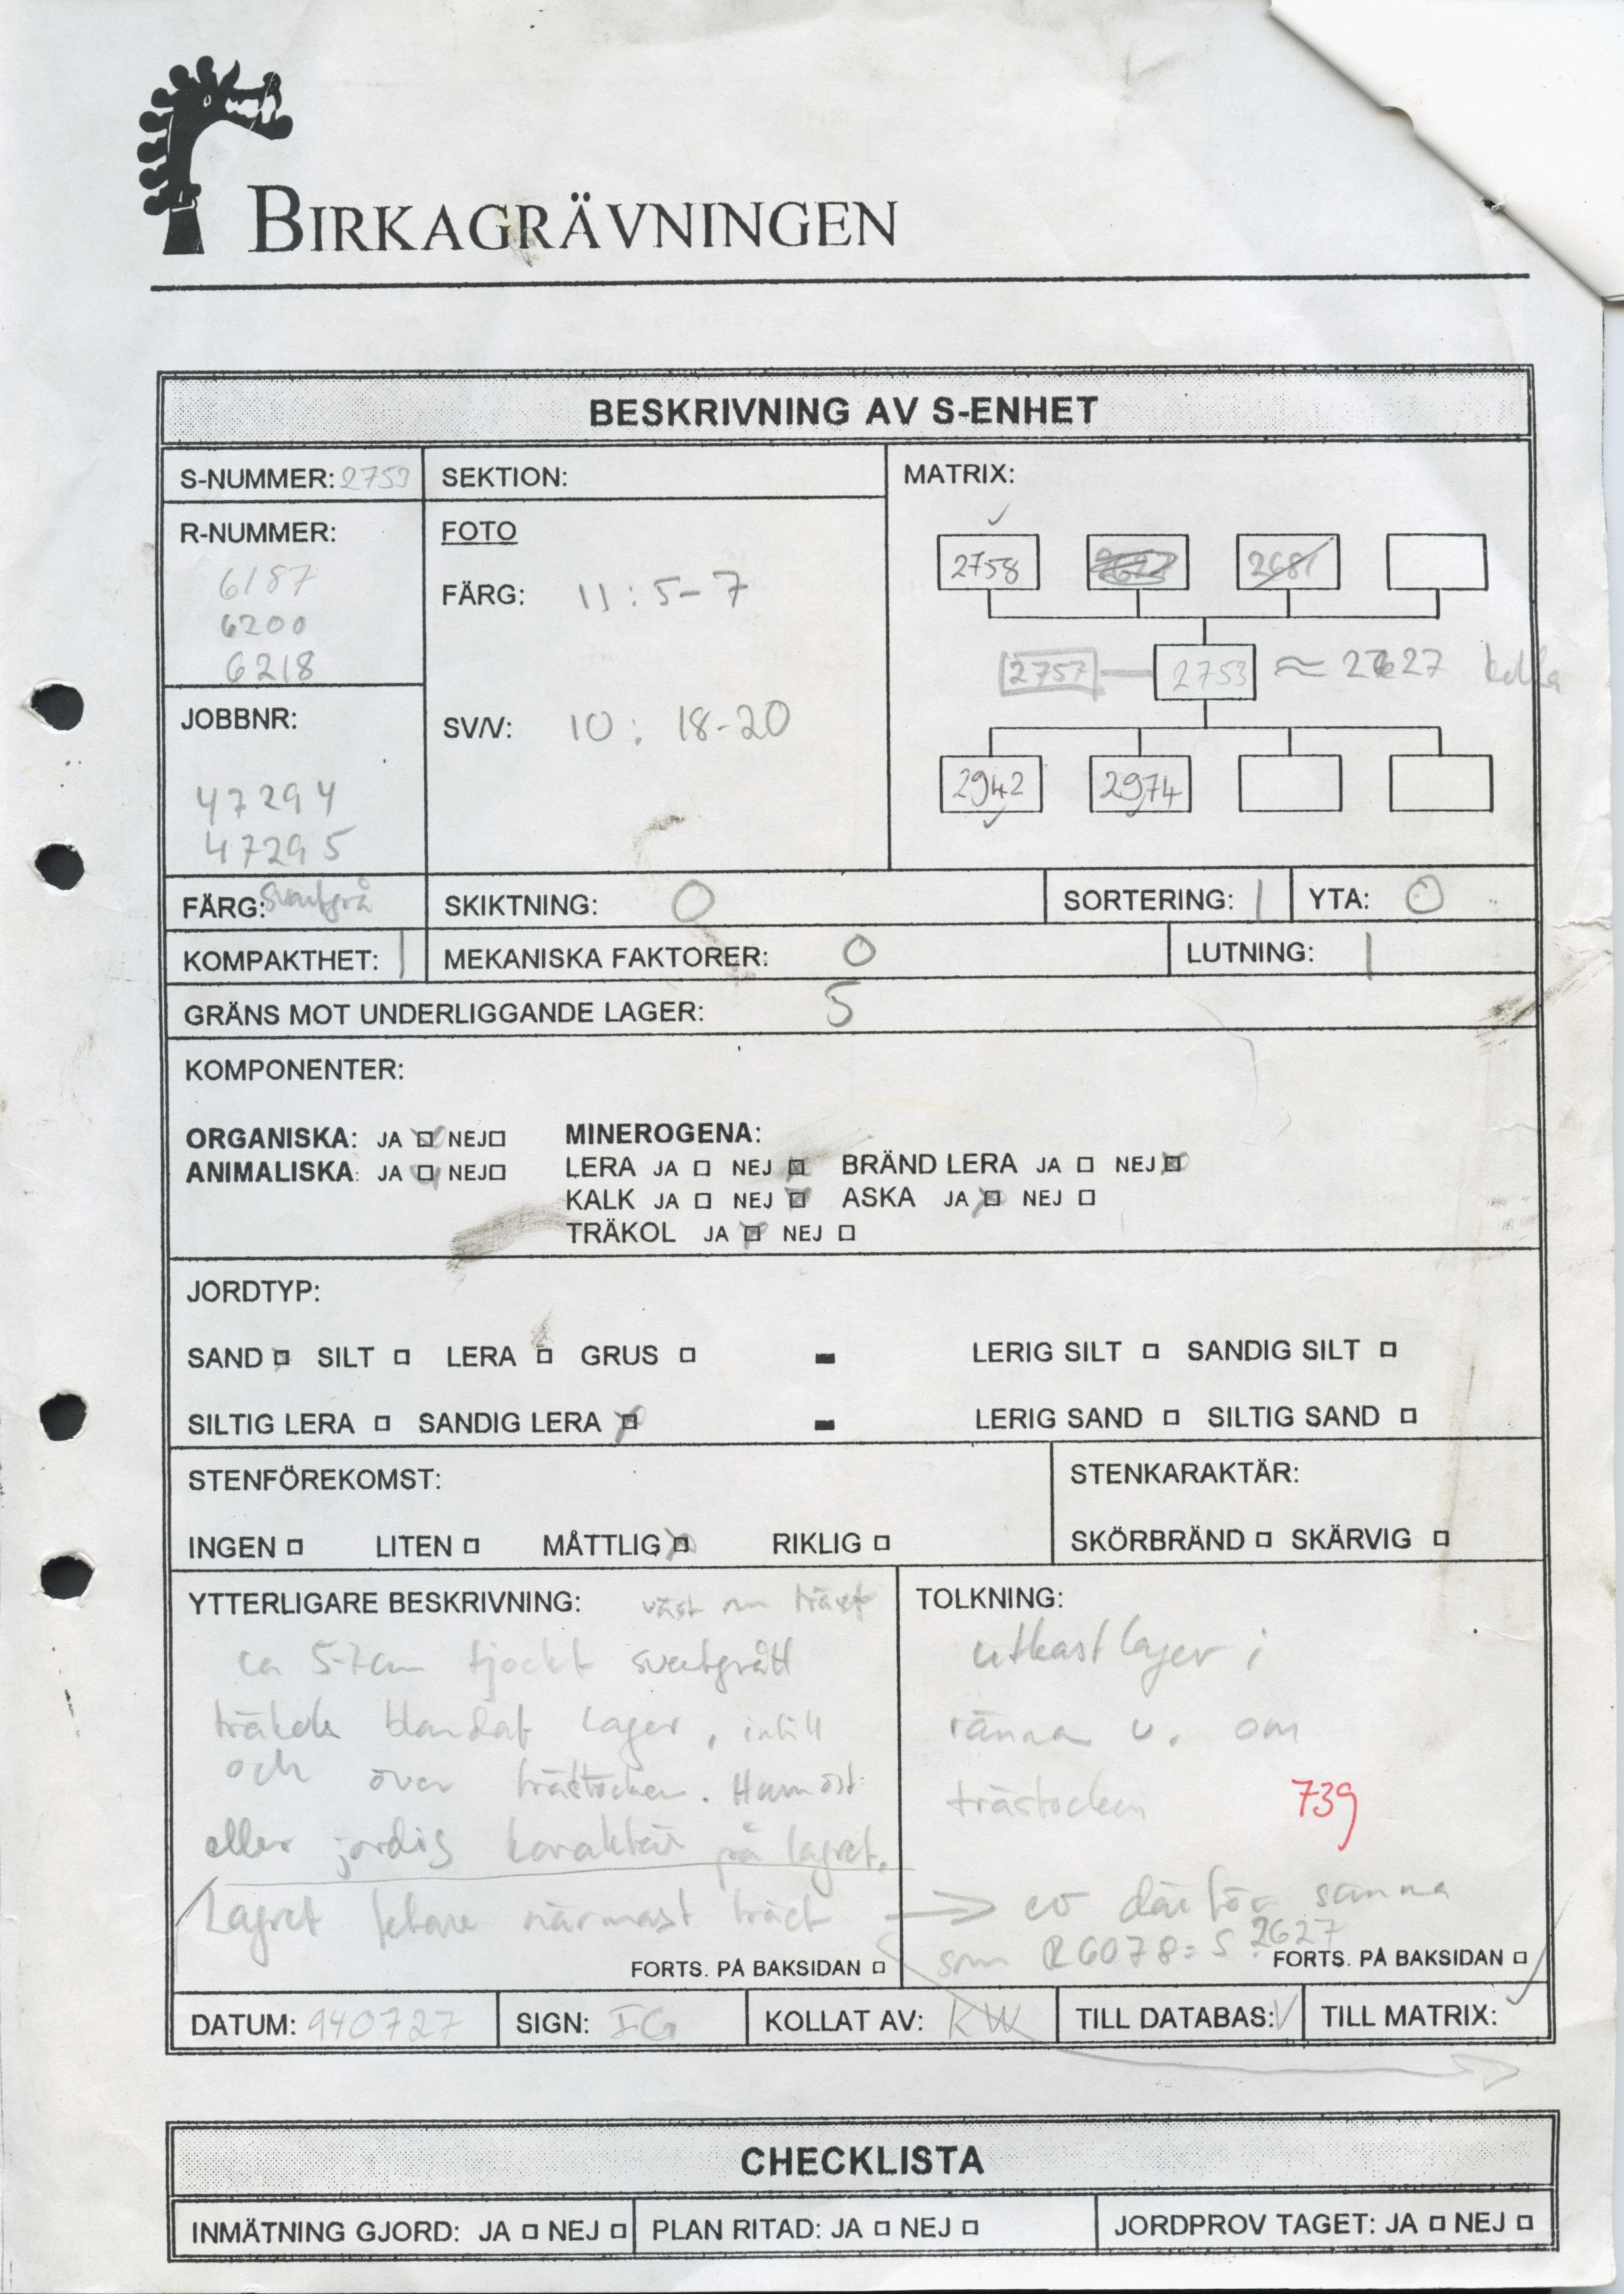 BIRKAGRÄVNINGEN
BESKRIVNING AV S-ENHET
S-NUMMER: 2753
SEKTION:
MATRIX:
R-NUMMER:
6187
6200
6218
FOTO
FÄRG: 11:5-7
SV/V: 10: 18-20
JOBBNR:
47294
47295
2758
2681
2757 2753 ≈ 2627 kolla
2942 2974
FÄRG: svartgrå
SKIKTNING: 0
SORTERING: 1
YTA: 0
KOMPAKTHET: 1
MEKANISKA FAKTORER: 0
LUTNING: 1
GRÄNS MOT UNDERLIGGANDE LAGER: 5
KOMPONENTER:
ORGANISKA: JA NEJ
ANIMALISKA: JA NEJ
MINEROGENA:
LERA JA NEJ BRÄND LERA JA NEJ
KALK JA NEJ ASKA JA NEJ
TRÄKOL JA NEJ
JORDTYP:
SAND SILT LERA GRUS - LERIG SILT SANDIG SILT
SILTIG LERA SANDIG LERA - LERIG SAND SILTIG SAND
STENFÖREKOMST:
INGEN LITEN MÅTTLIG RIKLIG
STENKARAKTÄR:
SKÖRBRÄND SKÄRVIG
YTTERLIGARE BESKRIVNING: väst om träet
ca 5-7cm tjockt svartgrått
träkols blandat lager, intill
och över trästocken. Humöst
eller jordig karaktär på lagret.
Lagret fetare närmast träet
FORTS. PÅ BAKSIDAN
TOLKNING:
utkastlager i
ränna v. om
trästocken 739
⇒ ev därför samma
som R6078=S 2627
FORTS. PÅ BAKSIDAN
DATUM: 940727
SIGN: IG
KOLLAT AV: KW
TILL DATABAS: V
TILL MATRIX:
CHECKLISTA
INMÄTNING GJORD: JA NEJ
PLAN RITAD: JA NEJ
JORDPROV TAGET: JA NEJ